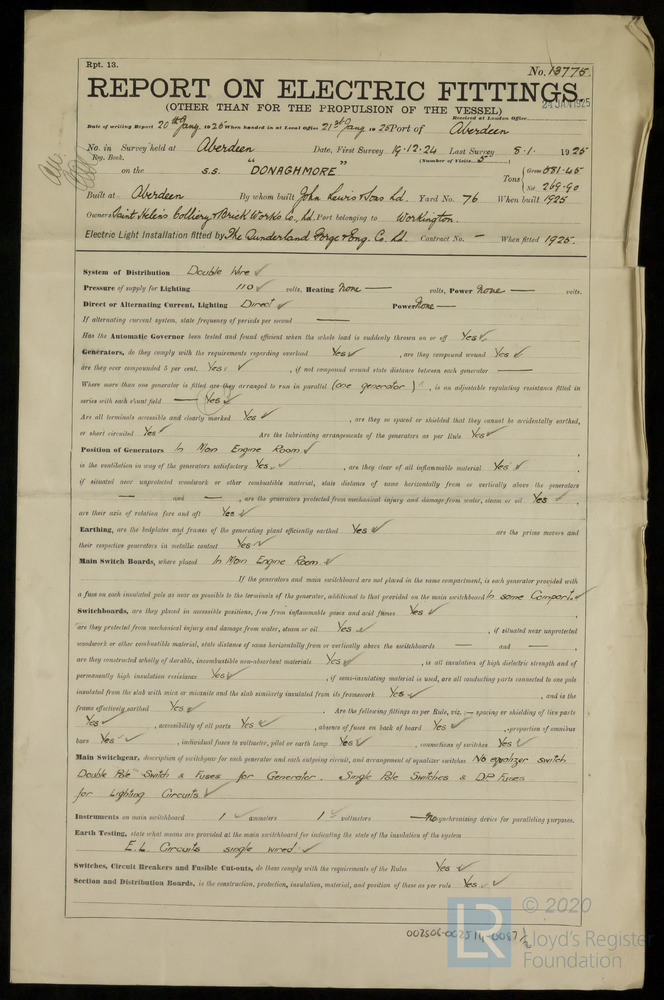 Rpt. 13.
No. 13775.
REPORT ON ELECTRIC FITTINGS.
(OTHER THAN FOR THE PROPULSION OF THE VESSEL)
Received at London Office 24 JAN 1925
Date of writing Report 20th Jany 1925 When handed in at Local Office 21st Jany 1925 Port of Aberdeen
No. in Survey held at Aberdeen Date, First Survey 19.12.24 Last Survey 8.1. 1925
Reg. Book. (Number of Visits 5)
on the S.S. "DONAGHMORE" Tons { Gross 581.45
Net 269.90
Built at Aberdeen By whom built John Lewis & Sons Ld. Yard No. 76 When built 1925
Owners Saint Helen's Colliery & Brick Works Co., Ld. Port belonging to Workington.
Electric Light Installation fitted by The Sunderland Forge & Eng. Co. Ld. Contract No. — When fitted 1925.
System of Distribution Double Wire
Pressure of supply for Lighting 110 volts, Heating None — volts, Power None — volts.
Direct or Alternating Current, Lighting Direct Power None —
If alternating current system, state frequency of periods per second —
Has the Automatic Governor been tested and found efficient when the whole load is suddenly thrown on or off Yes
Generators, do they comply with the requirements regarding overload Yes , are they compound wound Yes
are they over compounded 5 per cent. Yes , if not compound wound state distance between each generator —
Where more than one generator is fitted are they arranged to run in parallel (one generator) , is an adjustable regulating resistance fitted in
series with each shunt field — Yes
Are all terminals accessible and clearly marked Yes , are they so spaced or shielded that they cannot be accidentally earthed,
or short circuited Yes Are the lubricating arrangements of the generators as per Rule Yes
Position of Generators In Main Engine Room
is the ventilation in way of the generators satisfactory Yes , are they clear of all inflammable material Yes
if situated near unprotected woodwork or other combustible material, state distance of same horizontally from or vertically above the generators
— and — , are the generators protected from mechanical injury and damage from water, steam or oil Yes
are their axis of rotation fore and aft Yes
Earthing, are the bedplates and frames of the generating plant efficiently earthed Yes are the prime movers and
their respective generators in metallic contact Yes
Main Switch Boards, where placed In Main Engine Room
If the generators and main switchboard are not placed in the same compartment, is each generator provided with
a fuse on each insulated pole as near as possible to the terminals of the generator, additional to that provided on the main switchboard In same Compart.
Switchboards, are they placed in accessible positions, free from inflammable gases and acid fumes Yes
are they protected from mechanical injury and damage from water, steam or oil Yes , if situated near unprotected
woodwork or other combustible material, state distance of same horizontally from or vertically above the switchboards — and — ,
are they constructed wholly of durable, incombustible non-absorbent materials Yes , is all insulation of high dielectric strength and of
permanently high insulation resistance Yes , if semi-insulating material is used, are all conducting parts connected to one pole
insulated from the slab with mica or micanite and the slab similarly insulated from its framework Yes , and is the
frame effectively earthed Yes . Are the following fittings as per Rule, viz. :— spacing or shielding of live parts
Yes , accessibility of all parts Yes , absence of fuses on back of board Yes , proportion of omnibus
bars Yes , individual fuses to voltmeter, pilot or earth lamp Yes , connections of switches Yes
Main Switchgear, description of switchgear for each generator and each outgoing circuit, and arrangement of equalizer switches No equalizer switch
Double Pole Switch & Fuses for Generator. Single Pole Switches & D.P. Fuses
for Lighting Circuits
Instruments on main switchboard 1 ammeters 1 voltmeters — No synchronizing device for paralleling purposes.
Earth Testing, state what means are provided at the main switchboard for indicating the state of the insulation of the system
E.L Circuits single wired
Switches, Circuit Breakers and Fusible Cut-outs, do these comply with the requirements of the Rules Yes
Section and Distribution Boards, is the construction, protection, insulation, material, and position of these as per rule Yes
© 2020
LR Lloyd's Register
Foundation
002506-002514-0087 1/2